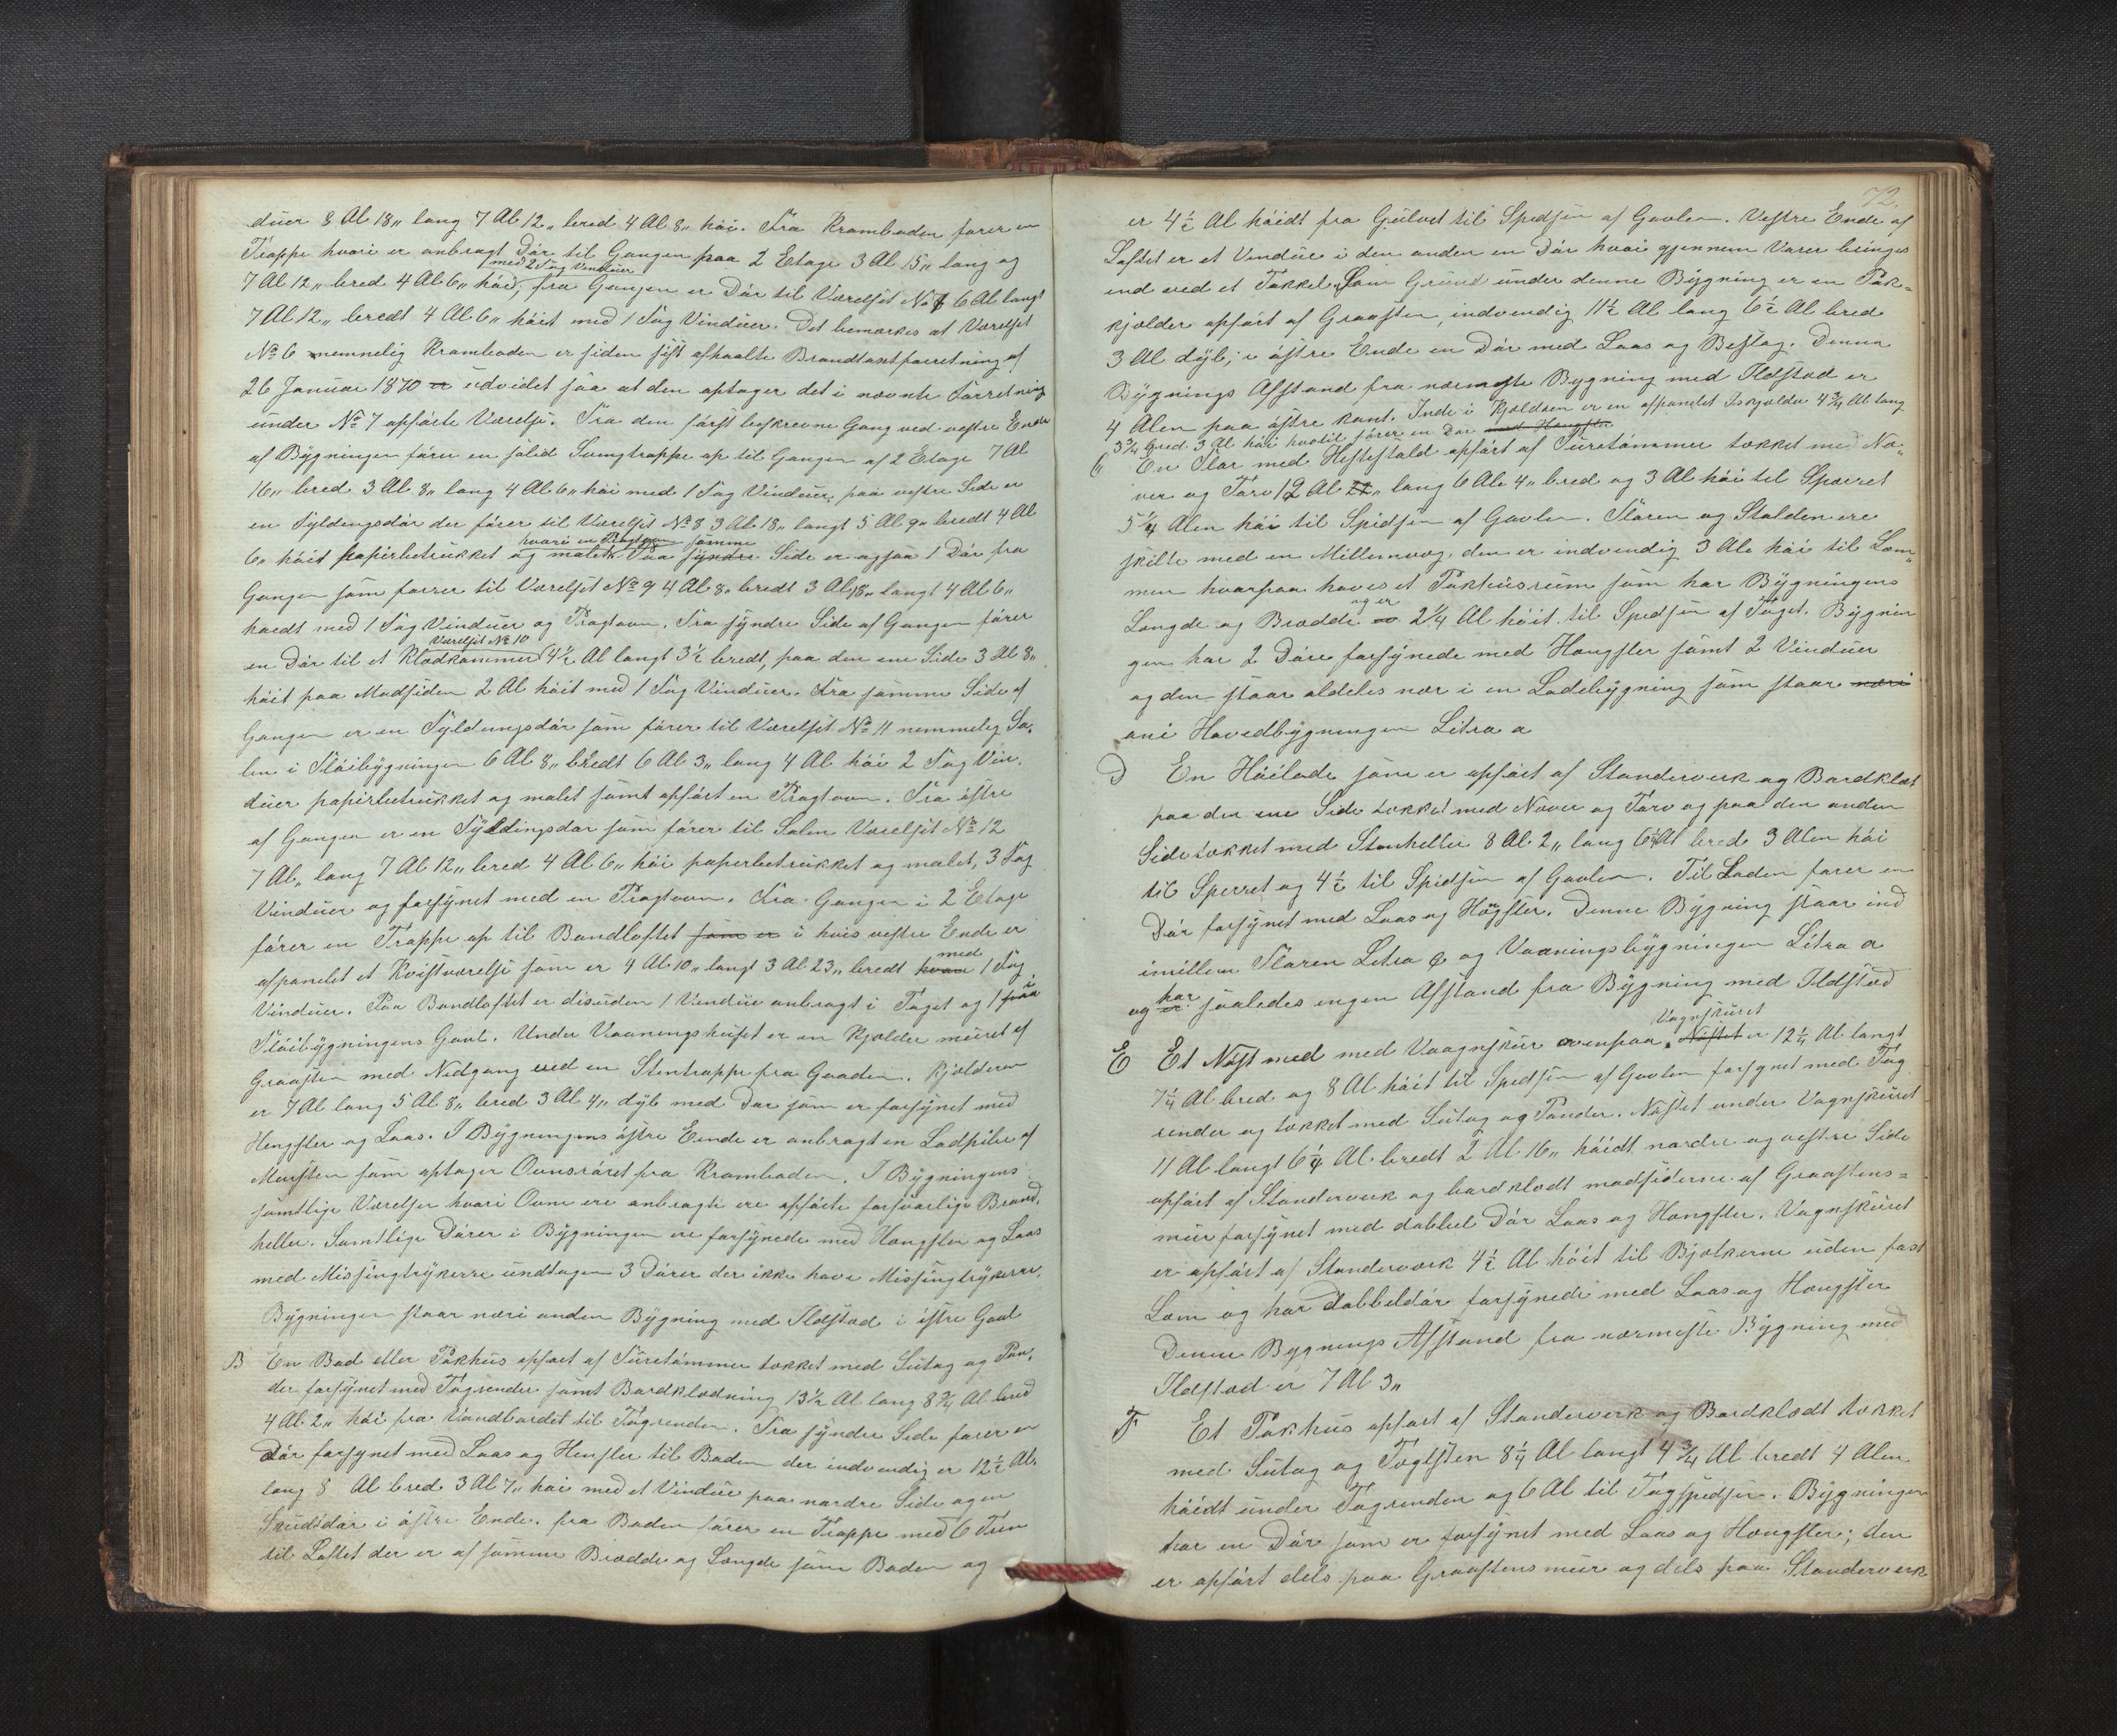 duer 8 Al 18„ lang 7 Al 12„ bred 4 Al 8„ hói. Fra Kramboden fører en
Trappe hvori er anbragt Dór til Gangen paa 2 Etage 3 Al 15„ lang og
med 2 Fag Vinduer
7 Al 12„ bred 4 Al 6„ hói, fra Gangen er Dór til Værelset No 7 6 Al langt
7 Al 12„ bredt 4 Al 6„ hóit med 1 Fag Vinduer. Det bemærkes at Værelset
No 6 nemnelig Kramboden er siden sist afholdte Brandtaxtforretning af
26 Januar 1870 er udvidet saa at den optager det i nævnte Forretning
under No 7 opførte Værelse. Fra den fórst beskrevne Gang ved vestre Ende
af Bygningen fórer en solid Svingtrappe op til Gangen af 2 Etage 7 Al
16„ bred 3 Al 8„ lang 4 Al 6„ hói med 1 Fag Vinduer, paa vestre Side er
en Fyldingsdór der fórer til Værelset No 8 3 Al 18„ langt 5 Al 9„ bredt 4 Al
hvori en Bragtovn samme
6„ hóit papirbetrukket og malet. Paa syndre Side er ogsaa 1 Dór fra
Gangen som fører til Værelset No 9 4 Al 8„ bredt 3 Al 18„ langt 4 Al 6„
hóidt med 1 Fag Vinduer og Bragtovn. Fra syndre Side af Gangen fórer
Værelset No 10
en Dór til et Klædkammer 4½ Al langt 3½ bredt, paa den ene Side 3 Al 8„
hóit paa Modsiden 2 Al hóit med 1 Fag Vinduer. Fra samme Side af
Gangen er en Fyldingsdór som fórer til Værelset No 11 nemmelig Sa-
len i Flóibygningen 6 Al 8„ bredt 6 Al 3„ lang 4 Al hói 2 Fag Vin-
duer papirbetrukket og malet samt opfórt en Bragtovn. Fra óstre
af Gangen er en Fyldingsdor som fórer til Salen Værelset No 12
7 Al„ lang 7 Al 12„ bred 4 Al 6„ hói papirbetrukket og malet, 3 Fag
Vinduer og forsynet med en Bragtovn. Fra Gangen i 2 Etage
fórer en Trappe op til Bondloftet som er i hvis vestre Ende er
med
afpanelet et Kvistværelse som er 4 Al 10„ langt 3 Al 23„ bredt hvori 1 Fag
Vinduer. Paa Bondloftet er disuden 1 Vindue anbragt i Taget og 1 paa
Flóibygningens Gavl. Under Vaaningshuset er en Kjælder muret af
Graasten med Nedgang ved en Stentrappe fra Gaaden. Kjælderen
er 7 Al lang 5 Al 8„ bred 3 Al 4„ dyb med Dør som er forsynet med
Hengsler og Laas. I Bygningens óstre Eende er anbragt en Lodpibe af
Mursten som optager Ovnsróret fra Kramboden. I Bygningens
samtlige Værelser hvori Ovne ere anbragte ere opførte forsvarlige Brand-
heller. Samtlige Dórer i Bygningen ere forsynede med Hængsler og Laas
med Missingtrykerre undtagen 3 Dórer der ikke have Missingtrykerre.
Bygningen staar næri anden Bygning med Ildstad i óstre Gavl
B En Bod eller Pakhus opført af Turetómmer tækket med Sutag og Pan-
der forsynet med Tagrender samt Bordklædning 13½ Al lang 8¾ Al bred
4 Al 2„ hói fra Vandbordet til Tagrenden. Fra syndre Side fører en
Dór forsynet med Laas og Hensler til Boden der indvendig er 12½ Al.
lang 8 Al bred 3 Al 7„ hói med et Vindue paa nordre Side og en
dór i óstre Ende. fra Boden fórer en Trappe med 6 Trin
til Loftet der er af samme Brædde og Længde som Boden og
72.
er 4½ Al hóidt fra Gulvet til Spedsen af Gavlen. Vestre Ende af
Loftet er et Vindue i den anden en Dór hvori gjennem Varer bringes
ind ved et Takkel. Som Grund under denne Bygning er en Pak-
kjælder opfórt af Graasten, indvendig 11½ Al lang 6½ Al bred
3 Al dyb; i óstre Ende en Dór med Laas og Beslag. Denne
Bygnings Afstand fra nærmeste Bygning med Ildstad er
4 Alen paa óstre Kant. Inde i Kjælderen er en afpanelet Iskjælder 4¾ Al lang
3¾ bred 3 Al hói hvortil fórer en Dór med Hengsler
C En Flor med Hestestald opfórt af Turetómmer tækket med Næ-
ver og Torv 12 Al 22„ lang 6 Al 4„ bred og 3 Al hói til Sperret
5¼ Alen hói til Spidsen af Gavlen. Floren og Stalden ere
skilte med en Millemvæg, den er indvendig 3 Al. hói til Læm-
men hvorpaa haves et Pakhusrum som har Bygningens
og er
Længde og Brædde er 2¼ Al hóit til Spedsen af Taget. Bygnin
gen har 2 Dóre forsynede med Hængsler samt 2 Vinduer
og den staar aldeles nær i en Ladebygning som staar næri
ani Hovedbygningen Litra a
D En Hóilade som er opfórt af Standerverk og Bordklæt
paa den ene Side tækket med Næver og Torv og paa den anden
Side tækket med Stenheller 8 Al 2„ lang 6¼ Al bred 3 Alen hói
til Sperret og 4½ til Spidsen af Gavlen. Til Laden fører en
Dór forsynet med Laas og Hægsler. Denne Bygning staar ind
imillem Floren Litra C og Vaaningsbygningen Litra a
har
og er saaledes ingen Afstand fra Bygning med Ildstad
Vagnskuret
E Et Nøst med med Vaagnskur ovenpaa. Nøstet er 12¼ Al langt
7¼ Al bred og 8 Al hóit til Spedsen af Gavlen forsynet med Tag
render og tækket med Sutag og Pander. Nøstet under Vagnskuret
11 Al langt 6¼ Al bredt 2 Al 16„ hóidt, nordre og vestre Side
opfórt af Standerverk og bordklædt modsiderne af Graastens-
mur forsynet med dobbel Dór Laas og Hængsler. Vagnskuret
er opfórt af Standerverk 4½ Al hóit til Bjælkerne uden fast
Lem og har dobbeldór forsynede med Laas og Hængsler
Denne Bygnings Afstand fra nærmeste Bygning med
Ildstad er 7 Al 3„
F Et Pakhus opfórt af Standerverk og Bordklædt tækket
med Sutag og Taglsten 8¼ Al langt 4¾ Al bredt 4 Alen
hóidt under Tagrenden og 6 Al til Tagspidsen. Bygningen
har en Dór som er forsynet med Laas og Hængsler; den
er opfórt dels paa Graastensmur og dels paa Standerverk